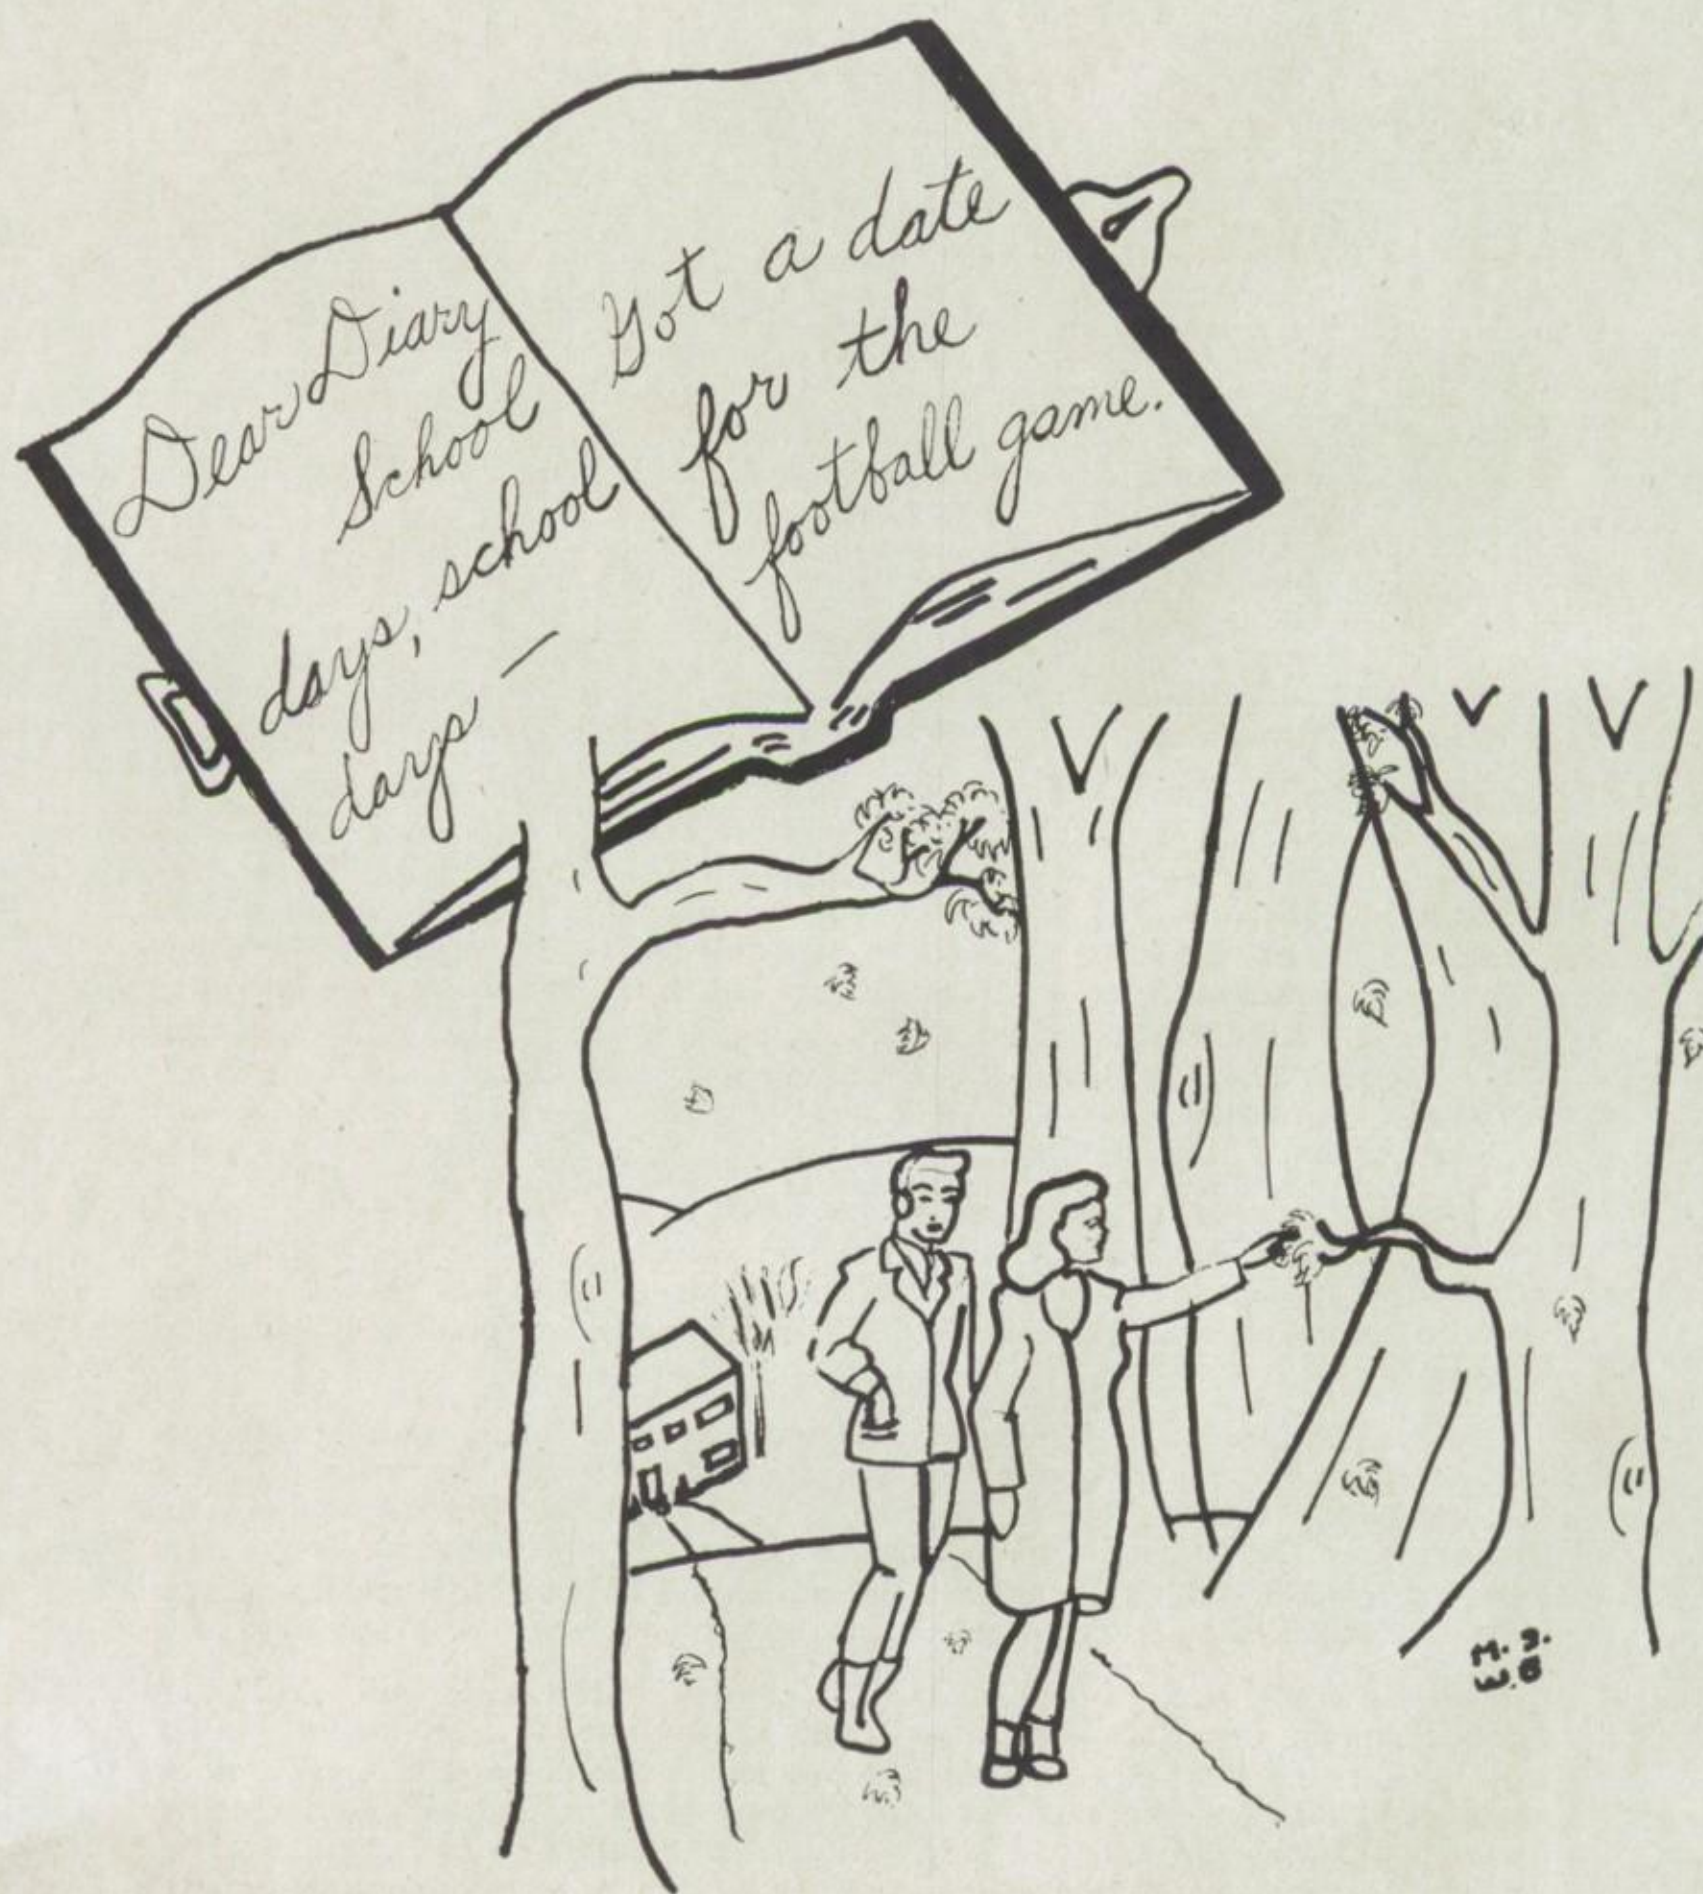 Dear Diary
School
days, school
days —
Got a date
for the
football game.
M. S.
W. B